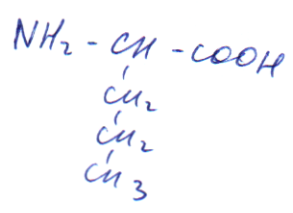 NH2 - CH - COOH
CH2
CH2
CH3